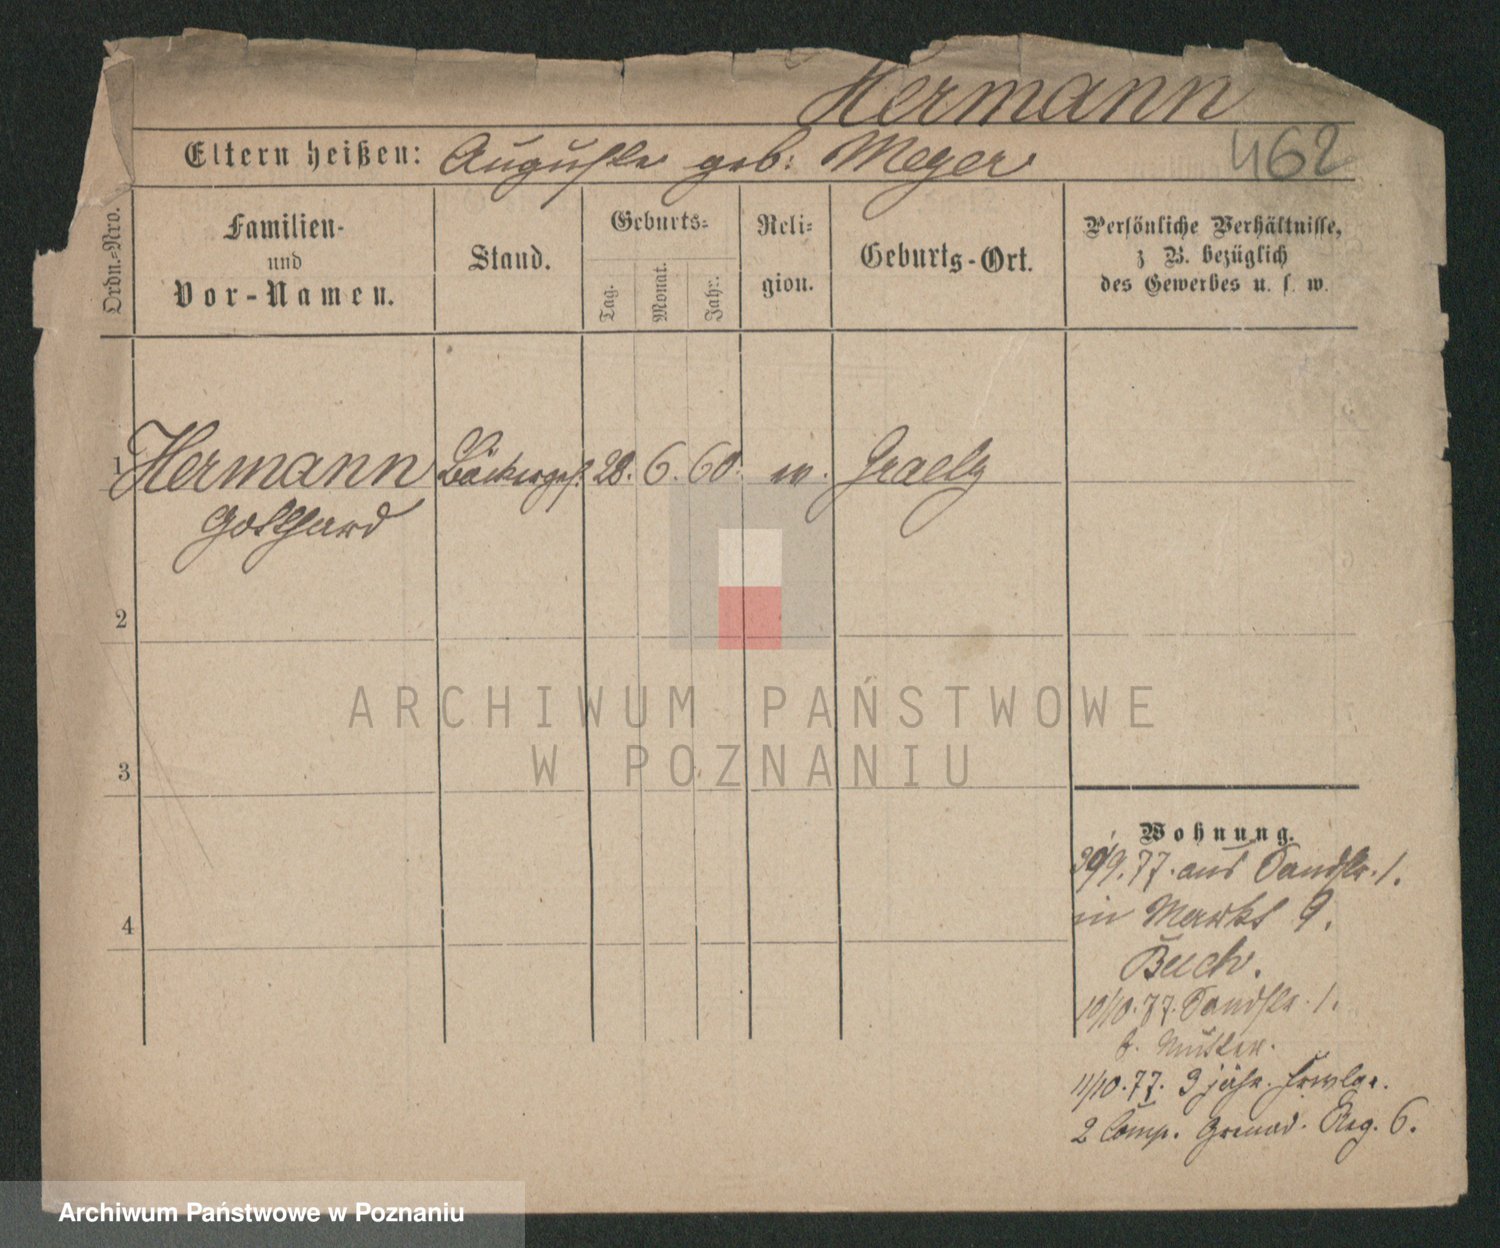 Hermann
Eltern heißen: Auguste geb: Meyer
462
Ordn.-Nro.
Familien-
und
Vor-Namen.
Stand.
Geburts-
Tag.
Monat.
Jahr.
Reli-
gion.
Geburts-Ort.
Persönliche Verhältnisse,
z B. bezüglich
des Gewerbes u. s. w.
1 Hermann Bäckerges. 28. 6. 60. ev. Graetz
Gotthard
2
3
4
Wohnung.
29/9. 77. aus Sandstr. 1.
in Markt 9.
Buch.
10/10. 77. Sandstr. 1.
b. Mutter.
11/10. 77. 3 jähr. Freiwlgr.
2 Comp. Grenad. Reg. 6.
ARCHIWUM PAŃSTWOWE
W POZNANIU
Archiwum Państwowe w Poznaniu